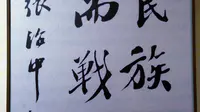 民族
而戦
張治中